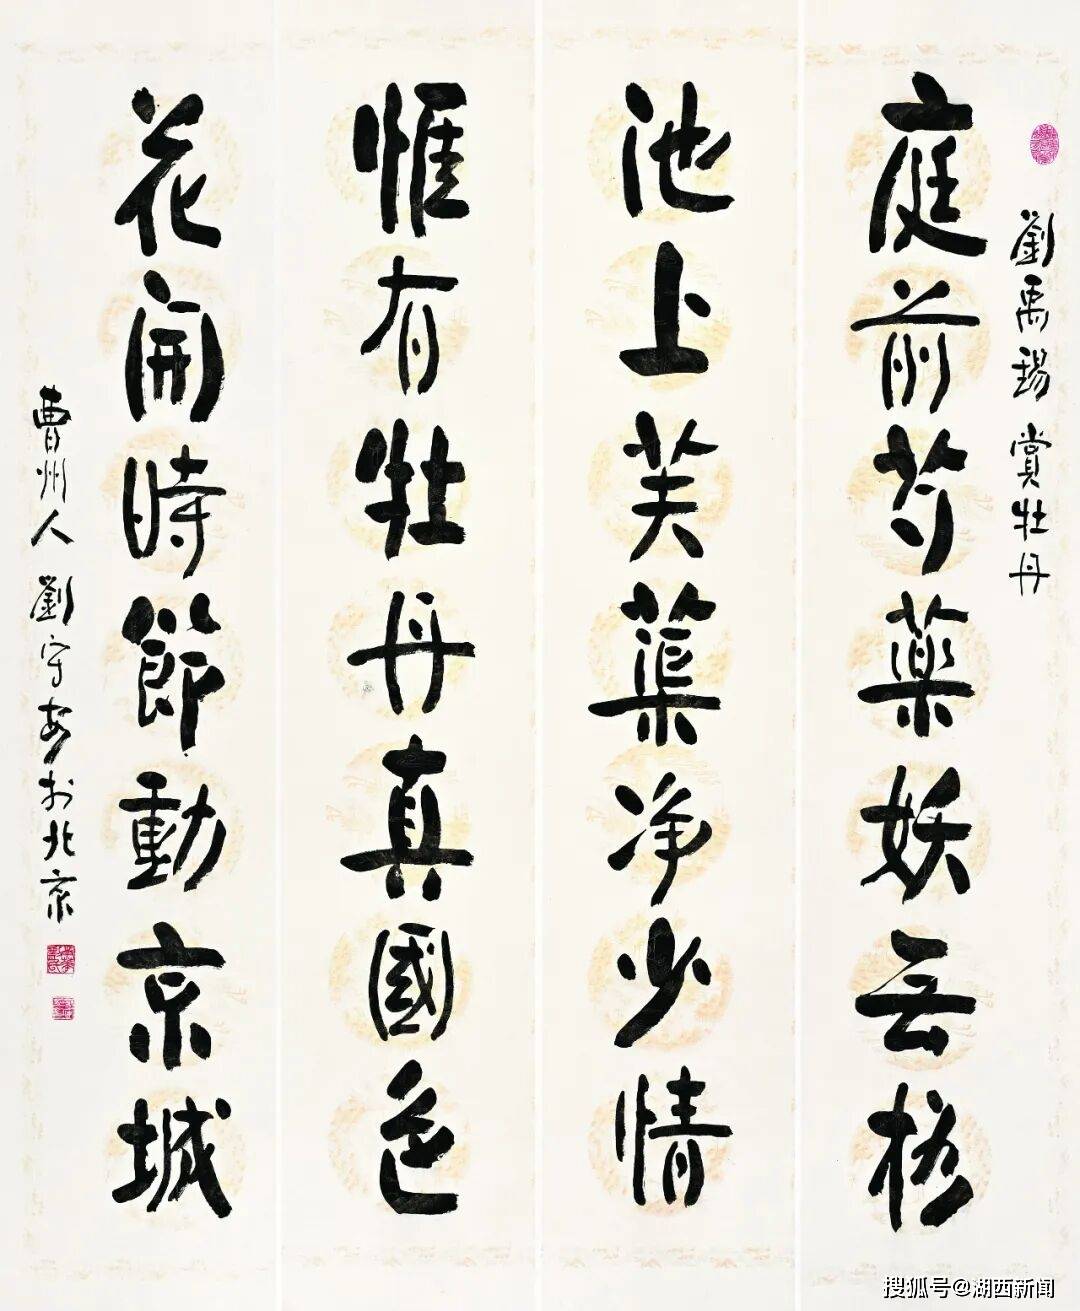 劉禹錫 賞牡丹
庭前芍藥妖无格
池上芙蕖净少情
惟有牡丹真國色
花開時節動京城
曹州人 劉守安於北京
搜狐号@湖西新闻